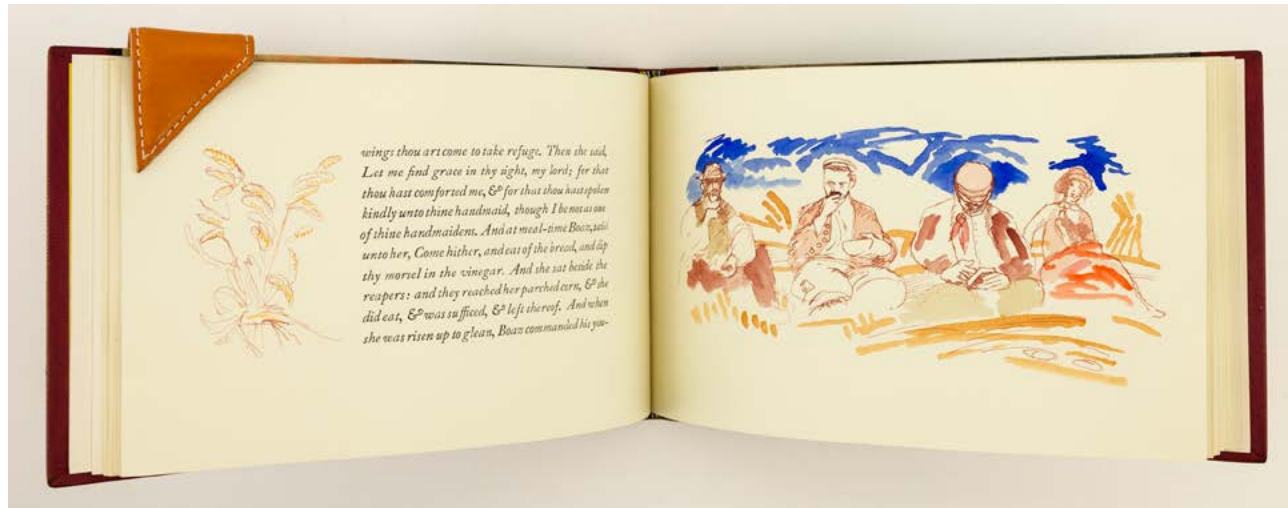 wings thou art come to take refuge. Then she said,
Let me find grace in thy sight, my lord; for that
thou hast comforted me, & for that thou hast spoken
kindly unto thine handmaid, though I be not as one
of thine handmaidens. And at meal-time Boaz, said
unto her, Come hither, and eat of the bread, and dip
thy morsel in the vinegar. And she sat beside the
reapers: and they reached her parched corn, & she
did eat, & was sufficed, & left thereof. And when
she was risen up to glean, Boaz commanded his you-